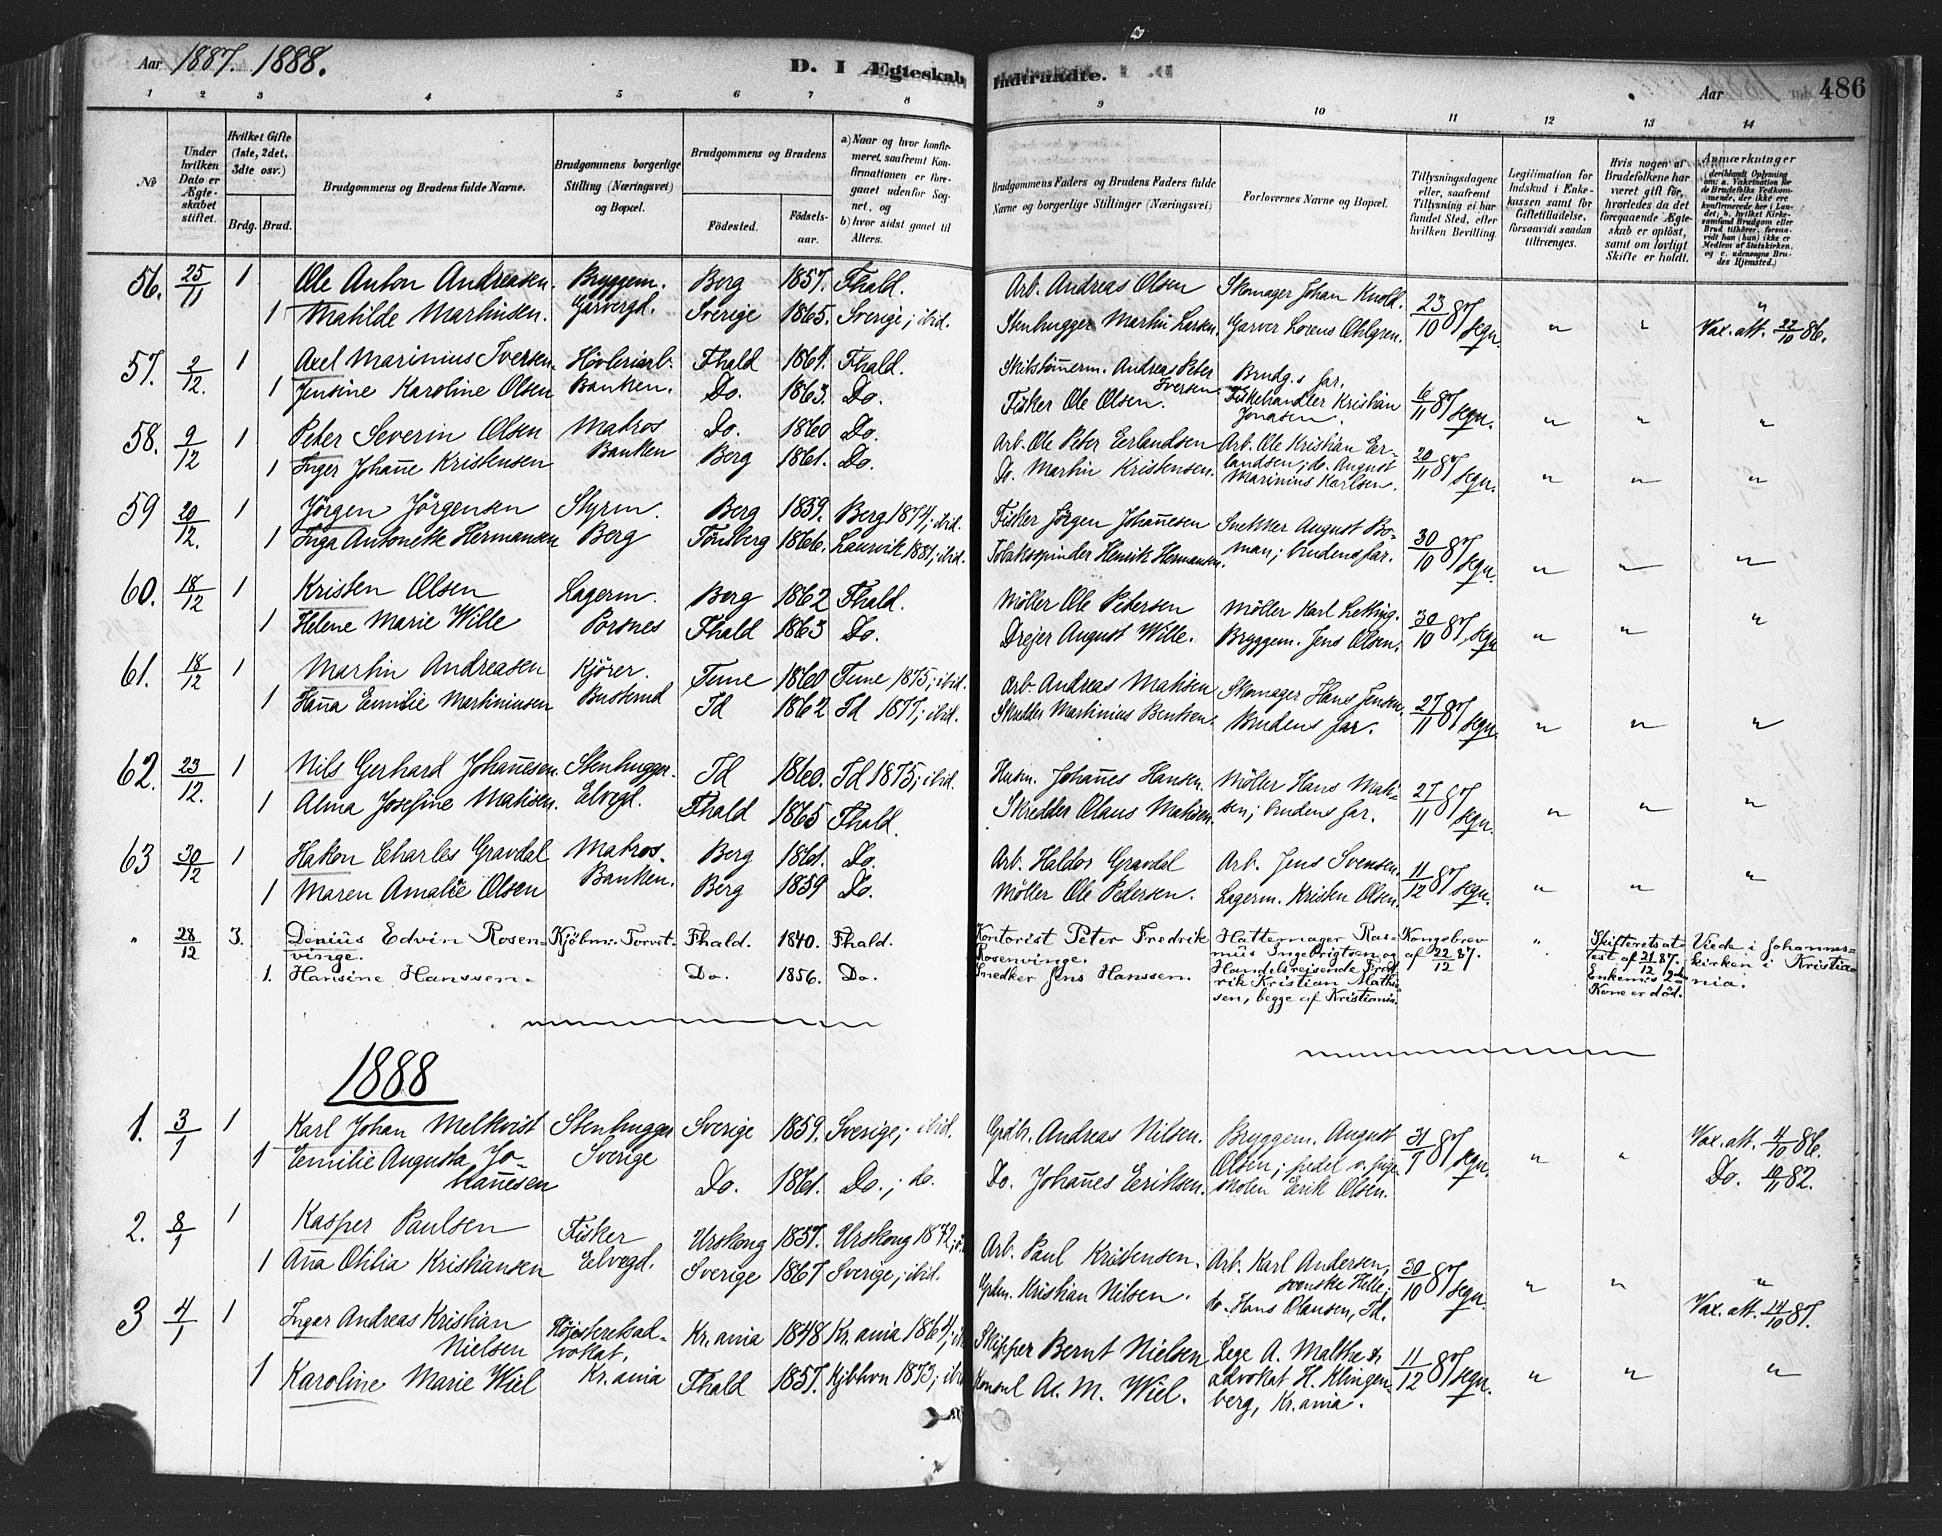 Aar 1887. 1888.
D. I Ægteskab Indtraadte.
Aar 486
1 2 3 4 5 6 7 8 9 10 11 12 13 14
No
Under hvilken Dato er Ægteskabet stiftet.
Hvilket Gifte (1ste, 2det, 3die osv.)
Brdg. Brud.
Brudgommens og Brudens fulde Navne.
Brudgommens borgerlige Stilling (Næringsvei) og Bopæl.
Brudgommens og Brudens
Fødested. Fødselsaar.
a) Naar og hvor konfirmeret, saafremt Konfirmationen er foregaaet udenfor Sognet, og
b) hvor sidst gaaet til Alters.
Brudgommens Faders og Brudens Faders fulde Navne og borgerlige Stillinger (Næringsvei)
Forlovernes Navne og Bopæl.
Tillysningsdagene eller, saafremt Tillysning ei har fundet Sted, efter hvilken Bevilling.
Legitimation for Indskud i Enkekassen samt for Giftetilladelse, forsaavidt saadan tiltrænges.
Hvis nogen af Brudefolkene har været gift før, hvorledes da det foregaaende Ægteskab er opløst, samt om lovligt Skifte er holdt.
Anmærkninger
56. 25/11 1 Ole Anton Andreasen. Bryggem. Berg 1857. Fhald. Arb. Andreas Olsen Skomager Johan Knold. 23/10 87 segn. " " "
1 Matilde Martinsen. Garvergd. Sverige 1865. Sverige; ibid. Stenhugger Martin Larsen. Garver Lorens Ohlgren. Vax. att. 22/10 86.
57. 2/12. 1 Axel Marinius Iversen. Høvleriarb. Fhald 1864. Fhald. Skibstømerm. Andreas Peter Iversen Brudg.s far. 6/11 87 segn. " " "
1 Jensine Karoline Olsen Banken. Do. 1863. Do. Fisker Ole Olsen. Fiskehandler Kristian Jonasen.
58. 9/12 1 Peter Severin Olsen Matros Do. 1860 Do. Arb. Ole Peter Erlandsen Arb. Ole Kristian Er- 20/11 87 segn. " " "
1 Inger Johañe Kristensen Banken Berg 1861. Do. Do. Martin Kristensen. landsen; do. August Marinius Karlsen.
59 20/12. 1 Jörgen Jörgensen Styrm. Berg 1859. Berg 1874; ibid. Fisker Jörgen Johañesen Snekker August Bo- 30/10 87 segn. " " "
1 Inga Antonette Hermansen Berg Tönsberg 1866. Laurvik 1881; ibid. Tobakspinder Henrik Hermansen. man; brudens far.
60. 18/12 1 Kristen Olsen Lagerm. Berg 1862 Fhald. Möller Ole Petersen Möller Karl Letting. 30/10 87 segn " " "
1 Helene Marie Wille Porsnes Fhald 1863 Do. Drejer August Wille. Bryggem. Jens Olsen.
61. 18/12 1 Martin Andreasen Kjörer. Tune 1860 Tune 1875; ibid. Arb. Andreas Matisen Skomager Hans Jensen. 27/11 87 segn. " " "
1 Haña Emilie Martiniusen Busterud Id 1862 Id 1877; ibid. Skredder Martinius Bentsen. Brudens far.
62. 23/12. 1 Nils Gerhard Johañesen. Stenhugger. Id 1860. Id 1875; ibid. Husm. Johañes Hansen. Möller Hans Mati- 27/11 87 segn. " " "
1 Alma Josefine Matisen. Elvegd. Fhald 1865 Fhald. Skredder Olaus Matisen. sen; brudens far.
63 30/12 1 Hakon Charles Gravdal Matros. Berg 1861. Do. Arb. Haldor Gravdal Arb. Jens Svensen. 11/12 87 segn. " " "
1 Maren Amalie Olsen Banken. Berg 1859 Do. Möller Ole Petersen. Lagerm. Kristen Olsen.
" 28/12 3. Denius Edvin Rosenvinge. Kjöbm. Torvet. Fhald. 1840. Fhald. Kontorist Peter Fredrik Rosenvinge. Hattemager Rasmus Ingebrigtsen og Handelsreisende Fredrik Kristian Mathisen, begge af Kristiania. Kongebrev af 22/12 87. " Skifteretsattest af 21/12 87. Enkemds 2den Kone er död. Viede i Johanneskirken i Kristiania.
1. Hansine Hanssen. Do. 1856. Do. Snedker Jens Hanssen.
1888
1. 3/1 1 Karl Johan Melkvist Stenhugger Sverige 1859. Sverige; ibid. Gråbr. Andreas Nilsen. Bryggem. August 31/1 87 segn. " " Vax. att. 4/10 86.
1 Emilie Augusta Johañesen Sverige Do. 1861. Do.; do. Do. Johañes Eriksen. Olsen; pedel v. pigeskolen Erik Olsen. Do. 10/11 82.
2. 8/1 1 Kasper Paulsen Fisker Urskoug 1857. Urskoug 1872; Arb. Paul Kristensen. Arb. Karl Andersen, 30/10 87 segn. " " "
1 Aña Otilia Kristiansen Elvegd. Sverige 1867 Sverige; ibid. Grdm. Kristian Nilsen. svenske Tistle; do. Hans Olausen, Id. Vax. att. 14/10 87.
3 4/1 1 Ingar Andreas Kristian Nielsen Höjesteretsadvokat, Kr.ania 1848 Kr.ania 1864; Skipper Bernt Nielsen Lege A. Malthe & 11/12 87 segn. " " "
1 Karoline Marie Wiel Kr.ania Fhald 1857. Kjbhvn 1873; ibid Konsul Ad. M. Wiel. advokat H. Klingenberg, Kr.ania.